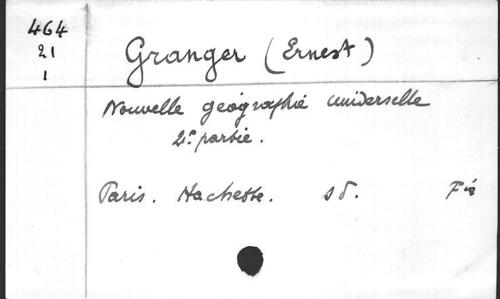 464
21
1
Granger (Ernest)
Nouvelle géographie universelle
2e partie.
Paris. Hachette. s d.